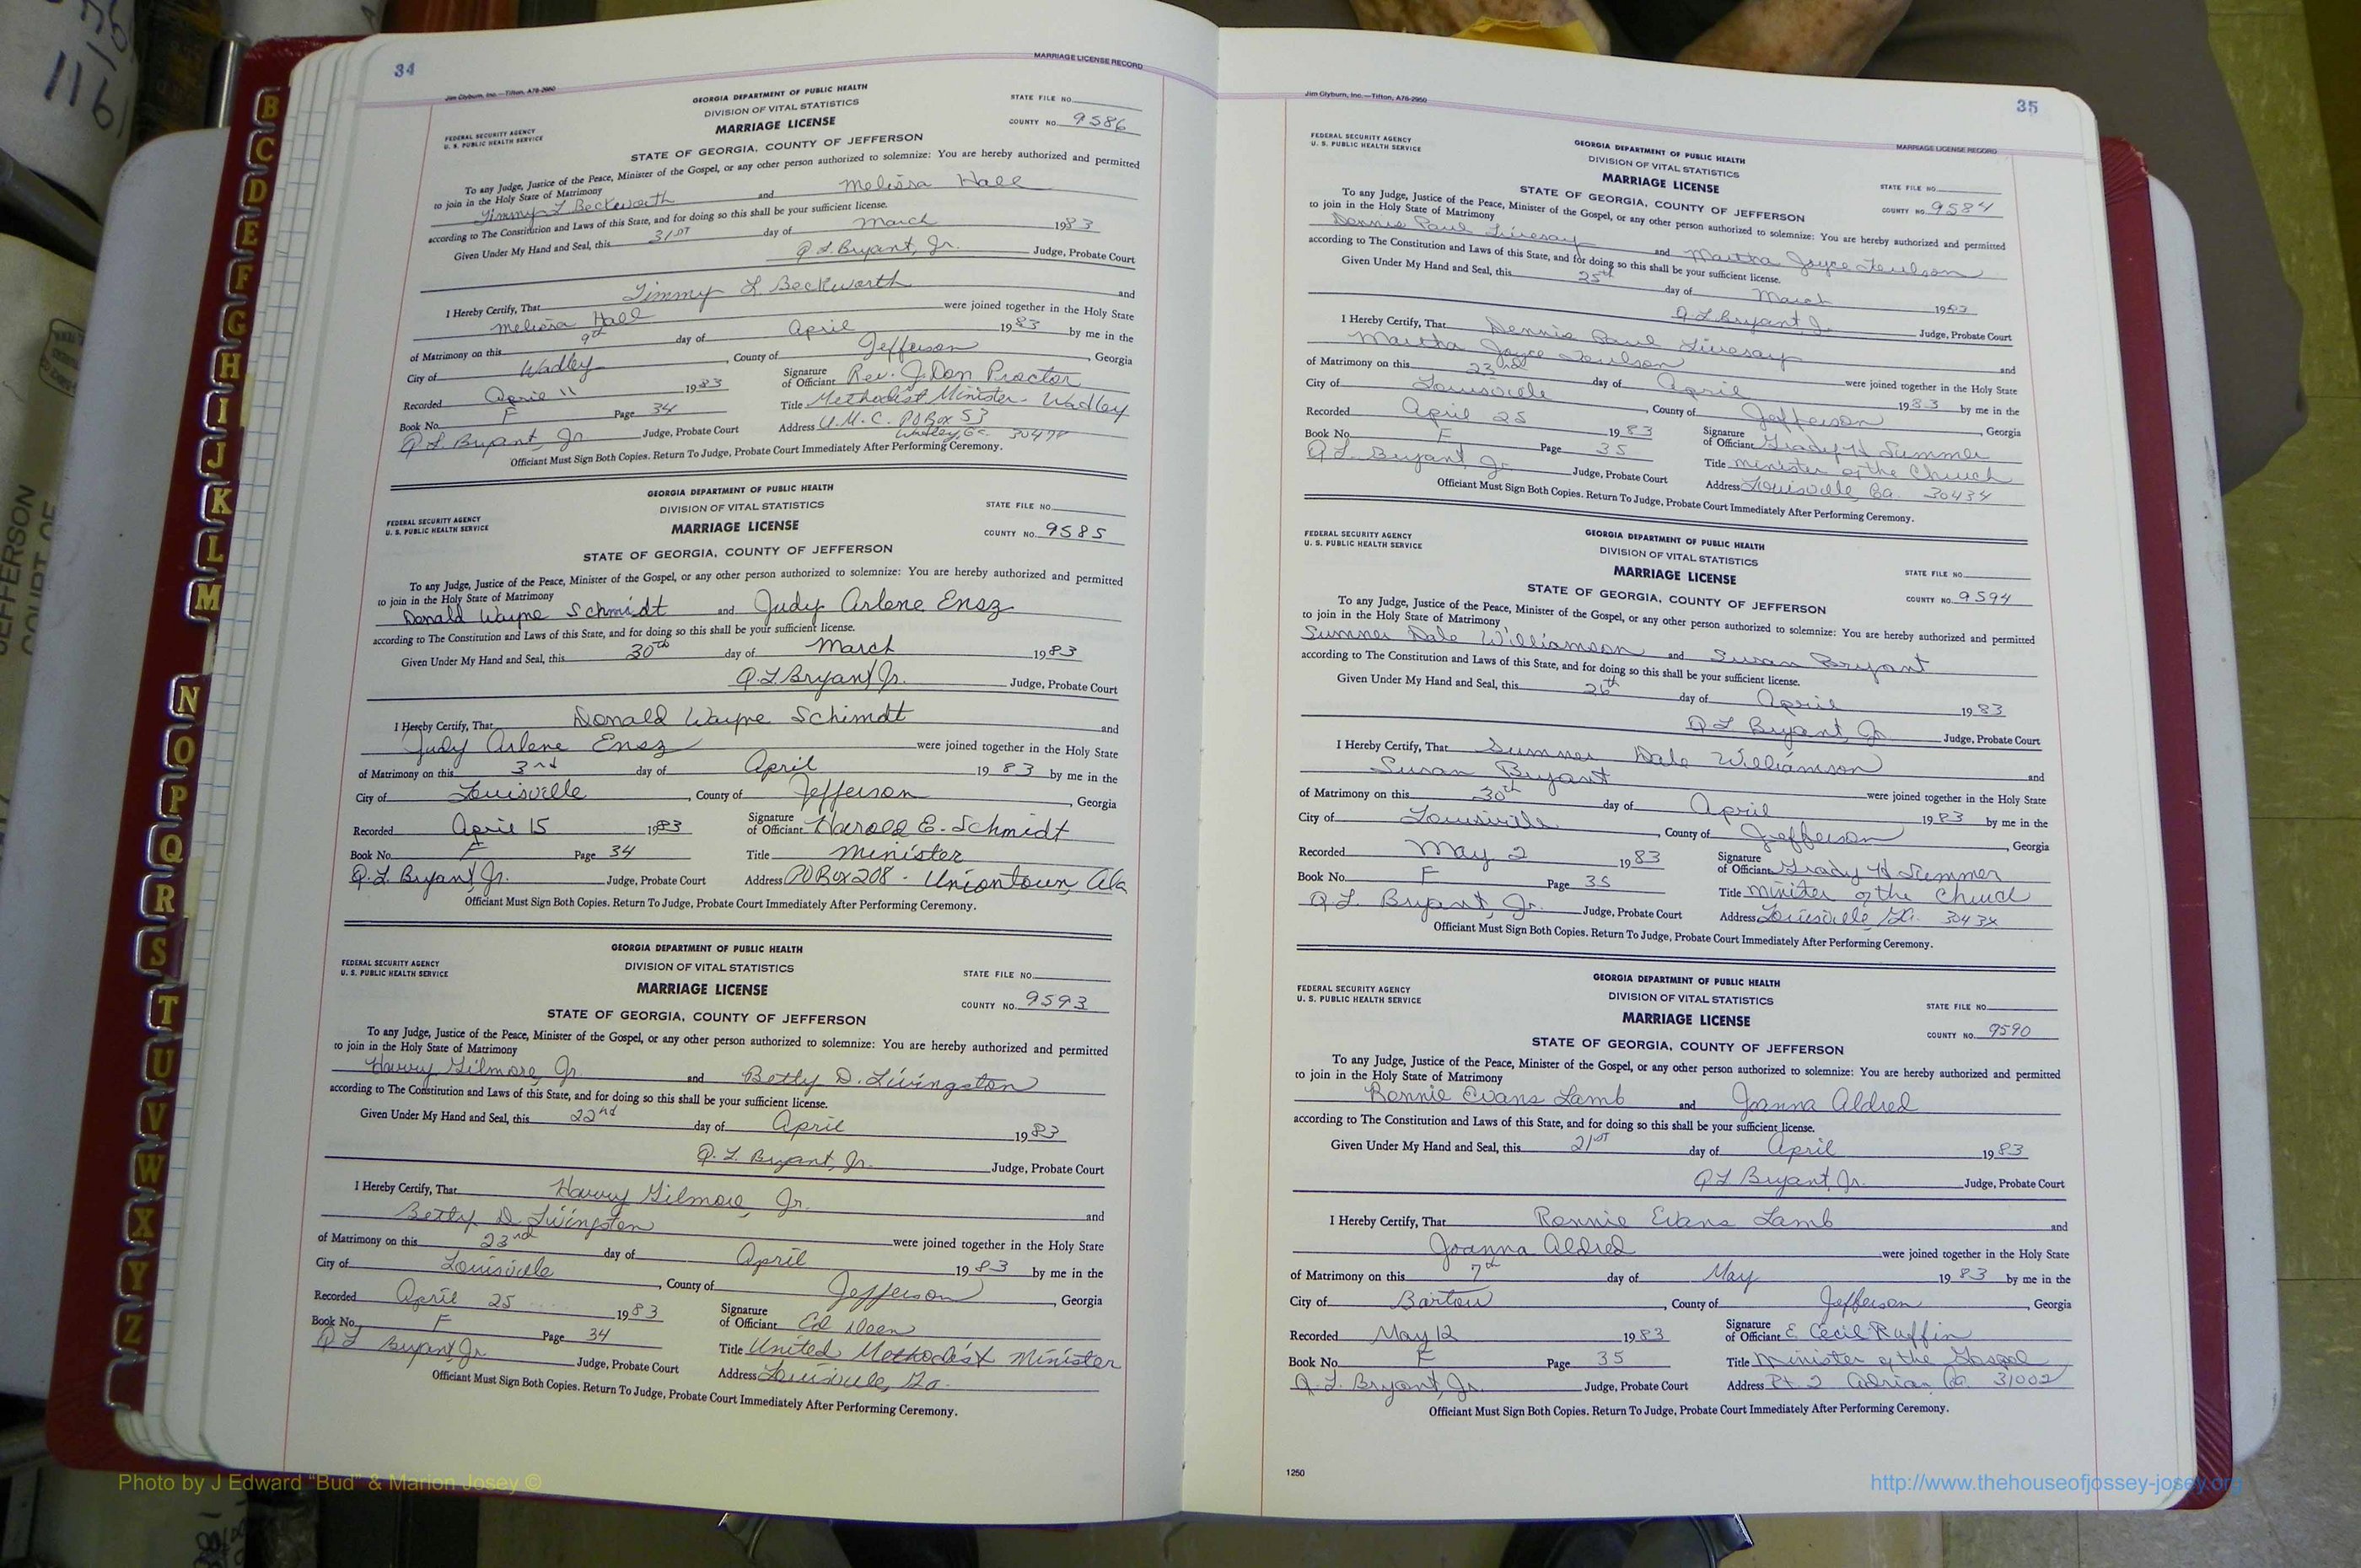 34
Jim Clyburn, Inc.—Tifton, A78-2960
MARRIAGE LICENSE RECORD
GEORGIA DEPARTMENT OF PUBLIC HEALTH
DIVISION OF VITAL STATISTICS
MARRIAGE LICENSE
STATE OF GEORGIA, COUNTY OF JEFFERSON
FEDERAL SECURITY AGENCY
U. S. PUBLIC HEALTH SERVICE
STATE FILE NO.
COUNTY NO. 9586
To any Judge, Justice of the Peace, Minister of the Gospel, or any other person authorized to solemnize: You are hereby authorized and permitted
to join in the Holy State of Matrimony
Timmy L Beckworth and Melissa Hall
according to The Constitution and Laws of this State, and for doing so this shall be your sufficient license.
Given Under My Hand and Seal, this 31ST day of March 1983
Q. L. Bryant, Jr. Judge, Probate Court
I Hereby Certify, That Timmy L. Beckworth and
Melissa Hall were joined together in the Holy State
of Matrimony on this 9th day of April 1983 by me in the
City of Wadley, County of Jefferson, Georgia
Recorded April 11 1983 Signature of Officiant Rev. J. Don Proctor
Book No. F Page 34 Title Methodist Minister - Wadley
Q. L. Bryant, Jr. Judge, Probate Court Address U.M.C. PO Box 53
Wadley, Ga.
Officiant Must Sign Both Copies. Return To Judge, Probate Court Immediately After Performing Ceremony.
GEORGIA DEPARTMENT OF PUBLIC HEALTH
DIVISION OF VITAL STATISTICS
MARRIAGE LICENSE
STATE OF GEORGIA, COUNTY OF JEFFERSON
FEDERAL SECURITY AGENCY
U. S. PUBLIC HEALTH SERVICE
STATE FILE NO.
COUNTY NO. 9585
To any Judge, Justice of the Peace, Minister of the Gospel, or any other person authorized to solemnize: You are hereby authorized and permitted
to join in the Holy State of Matrimony
Donald Wayne Schmidt and Judy Arlene Ensz
according to The Constitution and Laws of this State, and for doing so this shall be your sufficient license.
Given Under My Hand and Seal, this 30th day of March 1983
Q. L Bryant, Jr. Judge, Probate Court
I Hereby Certify, That Donald Wayne Schimdt and
Judy Arlene Ensz were joined together in the Holy State
of Matrimony on this 3rd day of April 1983 by me in the
City of Louisville, County of Jefferson, Georgia
Recorded April 15 1983 Signature of Officiant Harold E. Schmidt
Book No. F Page 34 Title Minister
Q. L. Bryant, Jr. Judge, Probate Court Address PO Box 208 - Uniontown, Ala
Officiant Must Sign Both Copies. Return To Judge, Probate Court Immediately After Performing Ceremony.
GEORGIA DEPARTMENT OF PUBLIC HEALTH
DIVISION OF VITAL STATISTICS
MARRIAGE LICENSE
STATE OF GEORGIA, COUNTY OF JEFFERSON
FEDERAL SECURITY AGENCY
U. S. PUBLIC HEALTH SERVICE
STATE FILE NO.
COUNTY NO. 9593
To any Judge, Justice of the Peace, Minister of the Gospel, or any other person authorized to solemnize: You are hereby authorized and permitted
to join in the Holy State of Matrimony
Harry Gilmore, Jr. and Betty D. Livingston
according to The Constitution and Laws of this State, and for doing so this shall be your sufficient license.
Given Under My Hand and Seal, this 22nd day of April 1983
Q. L. Bryant, Jr. Judge, Probate Court
I Hereby Certify, That Harry Gilmore, Jr. and
Betty D Livingston were joined together in the Holy State
of Matrimony on this 23rd day of April 1983 by me in the
City of Louisville, County of Jefferson, Georgia
Recorded April 25 1983 Signature of Officiant Ed
Book No. F Page 34 Title United Methodist Minister
Q L Bryant, Jr Judge, Probate Court Address Louisville, Ga.
Officiant Must Sign Both Copies. Return To Judge, Probate Court Immediately After Performing Ceremony.
35
Jim Clyburn, Inc.—Tifton, A78-2960
MARRIAGE LICENSE RECORD
GEORGIA DEPARTMENT OF PUBLIC HEALTH
DIVISION OF VITAL STATISTICS
MARRIAGE LICENSE
STATE OF GEORGIA, COUNTY OF JEFFERSON
FEDERAL SECURITY AGENCY
U. S. PUBLIC HEALTH SERVICE
STATE FILE NO.
COUNTY NO. 9584
To any Judge, Justice of the Peace, Minister of the Gospel, or any other person authorized to solemnize: You are hereby authorized and permitted
to join in the Holy State of Matrimony
Dennis Paul Livesay and Martha Joyce
according to The Constitution and Laws of this State, and for doing so this shall be your sufficient license.
Given Under My Hand and Seal, this 25th day of March 1983
Q L Bryant Jr. Judge, Probate Court
I Hereby Certify, That Dennis Paul Livesay and
Martha Joyce were joined together in the Holy State
of Matrimony on this 23rd day of April 1983 by me in the
City of Louisville, County of Jefferson, Georgia
Recorded April 25 1983 Signature of Officiant Grady H Summer
Book No. F Page 35 Title minister of the Church
Q L. Bryant, Jr. Judge, Probate Court Address Louisville, Ga. 30434
Officiant Must Sign Both Copies. Return To Judge, Probate Court Immediately After Performing Ceremony.
GEORGIA DEPARTMENT OF PUBLIC HEALTH
DIVISION OF VITAL STATISTICS
MARRIAGE LICENSE
STATE OF GEORGIA, COUNTY OF JEFFERSON
FEDERAL SECURITY AGENCY
U. S. PUBLIC HEALTH SERVICE
STATE FILE NO.
COUNTY NO. 9594
To any Judge, Justice of the Peace, Minister of the Gospel, or any other person authorized to solemnize: You are hereby authorized and permitted
to join in the Holy State of Matrimony
Sumner Dale Williamson and Susan Bryant
according to The Constitution and Laws of this State, and for doing so this shall be your sufficient license.
Given Under My Hand and Seal, this 26th day of April 1983
Q L Bryant, Jr. Judge, Probate Court
I Hereby Certify, That Sumner Dale Williamson and
Susan Bryant were joined together in the Holy State
of Matrimony on this 30th day of April 1983 by me in the
City of Louisville, County of Jefferson, Georgia
Recorded May 2 1983 Signature of Officiant Grady H Summer
Book No. F Page 35 Title minister of the Church
Q L. Bryant, Jr. Judge, Probate Court Address Louisville, Ga.
Officiant Must Sign Both Copies. Return To Judge, Probate Court Immediately After Performing Ceremony.
GEORGIA DEPARTMENT OF PUBLIC HEALTH
DIVISION OF VITAL STATISTICS
MARRIAGE LICENSE
STATE OF GEORGIA, COUNTY OF JEFFERSON
FEDERAL SECURITY AGENCY
U. S. PUBLIC HEALTH SERVICE
STATE FILE NO.
COUNTY NO. 9590
To any Judge, Justice of the Peace, Minister of the Gospel, or any other person authorized to solemnize: You are hereby authorized and permitted
to join in the Holy State of Matrimony
Ronnie Evans Lamb and Joanna Aldred
according to The Constitution and Laws of this State, and for doing so this shall be your sufficient license.
Given Under My Hand and Seal, this 21ST day of April 1983
Q L Bryant, Jr. Judge, Probate Court
I Hereby Certify, That Ronnie Evans Lamb and
Joanna Aldred were joined together in the Holy State
of Matrimony on this 7th day of May 1983 by me in the
City of Bartow, County of Jefferson, Georgia
Recorded May 12 1983 Signature of Officiant E Cecil Ruffin
Book No. F Page 35 Title Minister of the Gospel
Q. L. Bryant, Jr. Judge, Probate Court Address Rt. 2 Adrian, Ga. 31002
Officiant Must Sign Both Copies. Return To Judge, Probate Court Immediately After Performing Ceremony.
1250
B
C
D
E
F
G
H
I
J
K
L
M
N
O
P
Q
R
S
T
U
V
W
X
Y
Z
JEFFERSON
COURT OF
Photo by J Edward “Bud” & Marion Josey ©
http://www.thehouseofjossey-josey.org